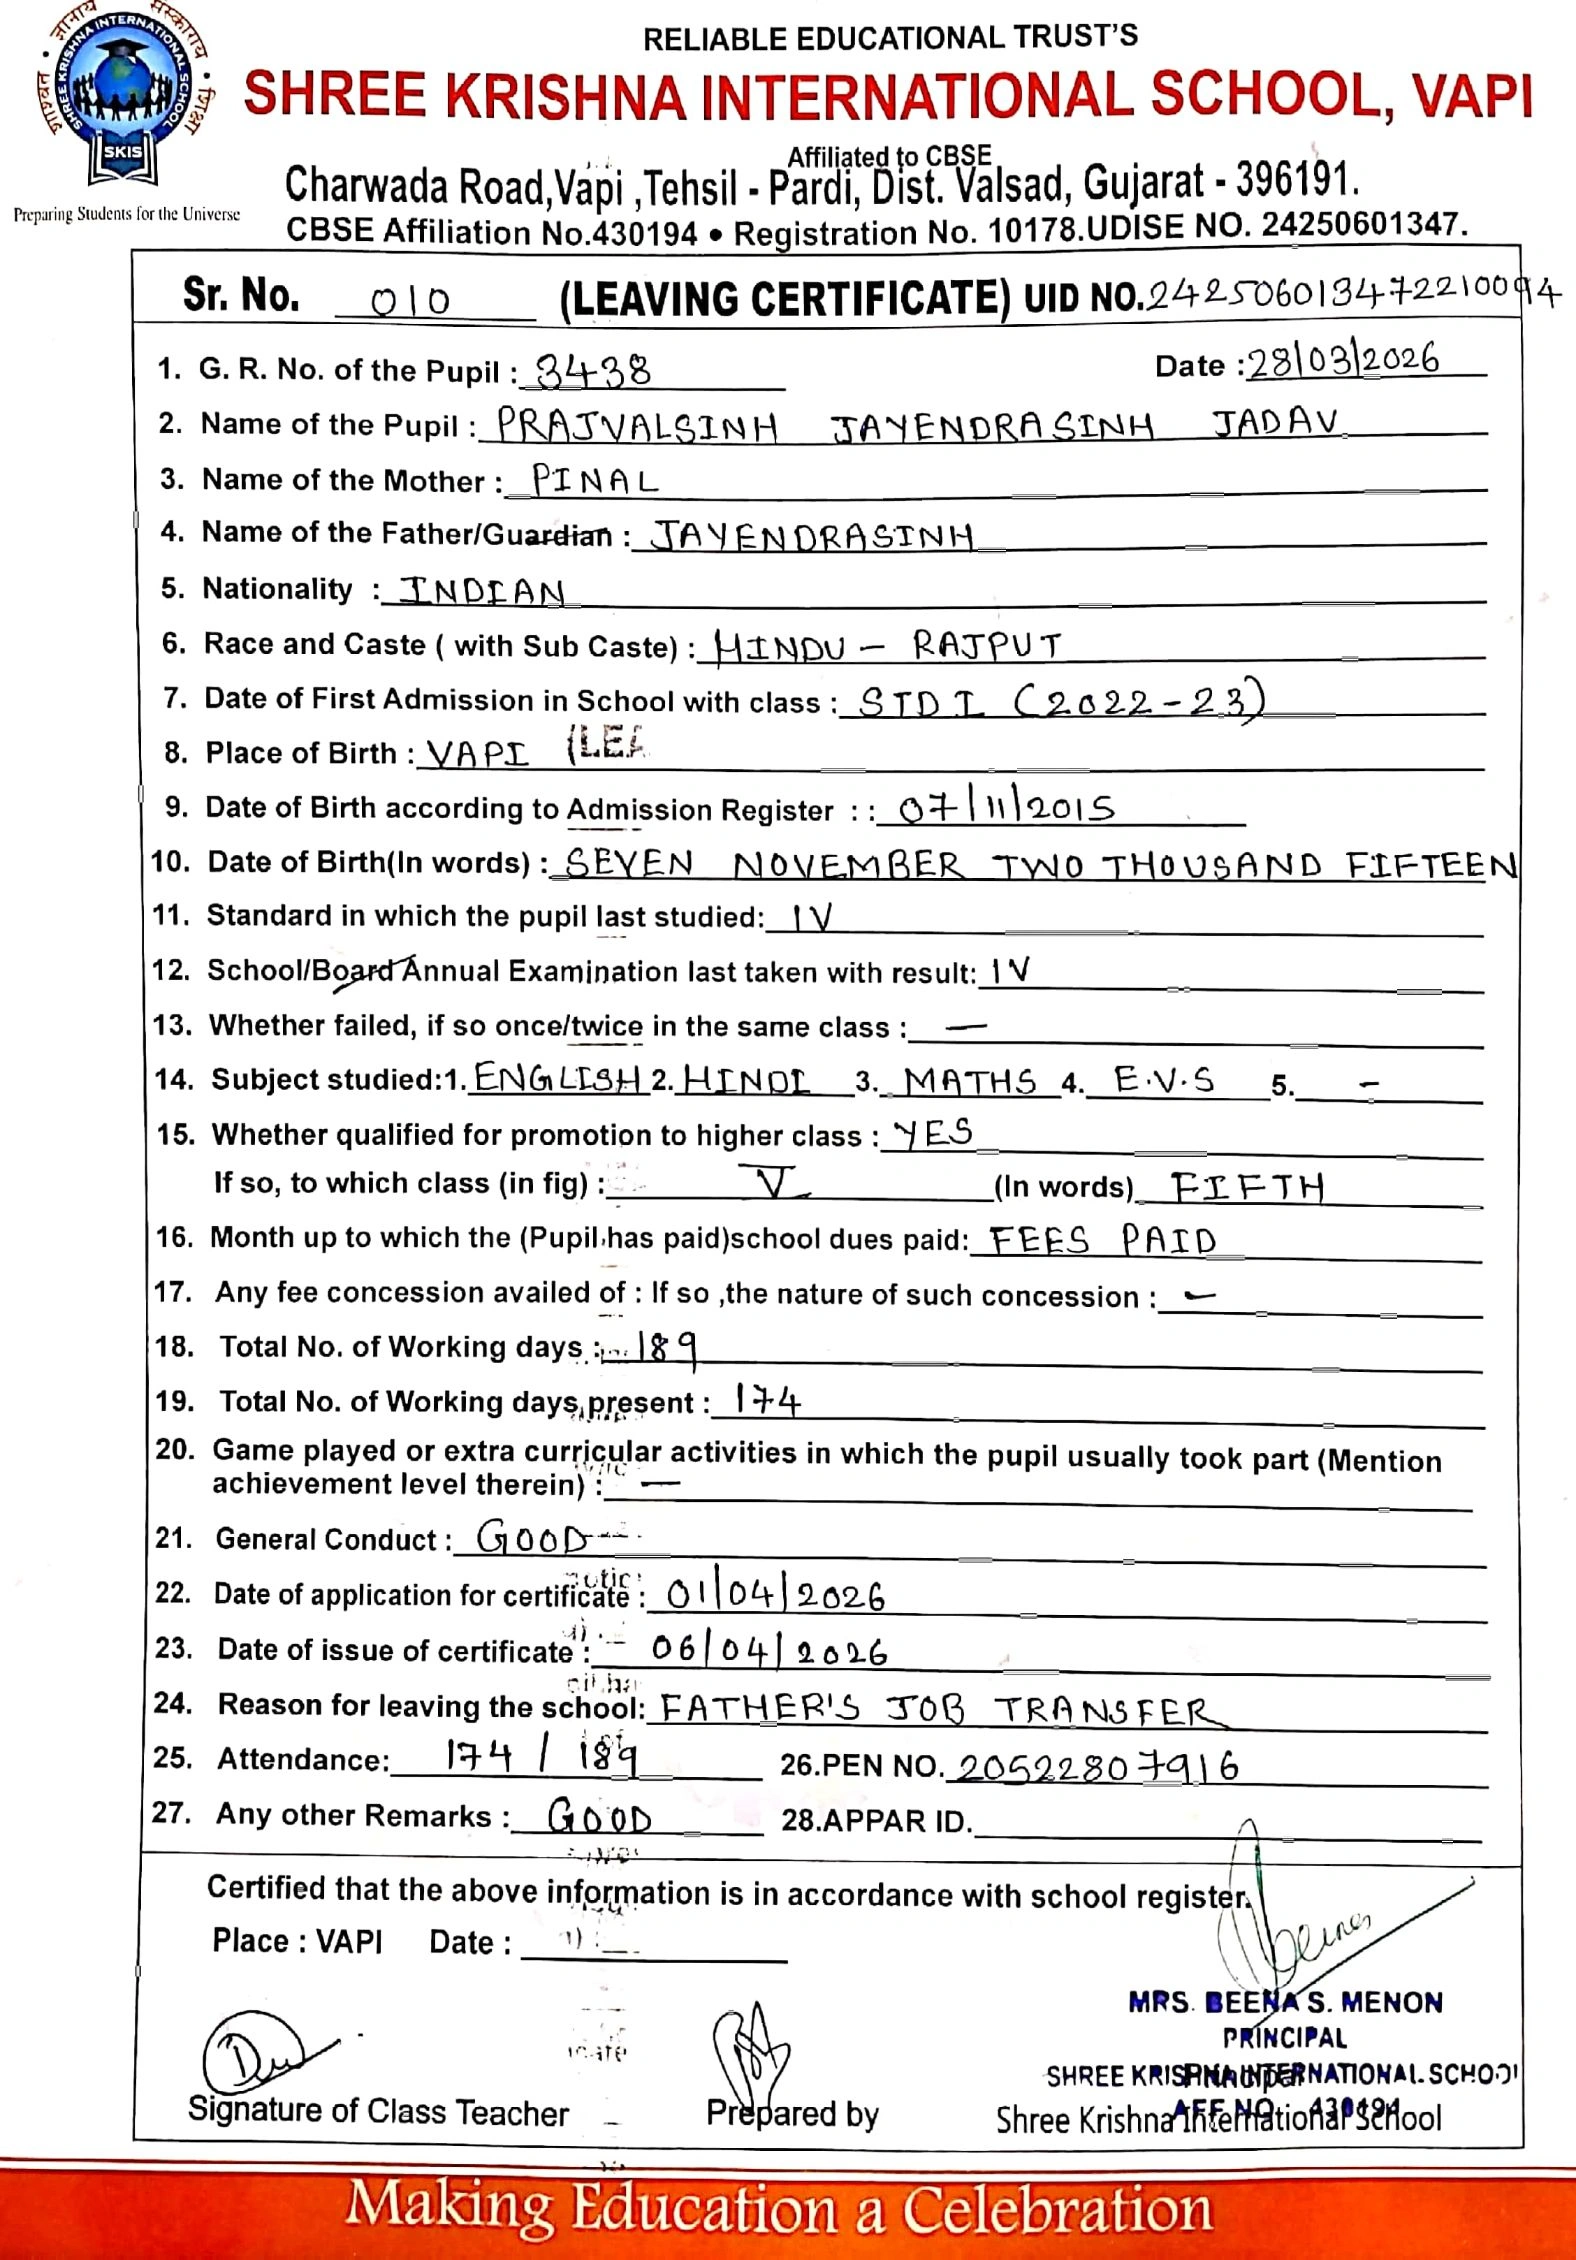 ज्ञानाय संस्काराय
SHREE KRISHNA INTERNATIONAL SCHOOL
SKIS
Preparing Students for the Universe
RELIABLE EDUCATIONAL TRUST'S
SHREE KRISHNA INTERNATIONAL SCHOOL, VAPI
Affiliated to CBSE
Charwada Road,Vapi ,Tehsil - Pardi, Dist. Valsad, Gujarat - 396191.
CBSE Affiliation No.430194 • Registration No. 10178.UDISE NO. 24250601347.
Sr. No. 010 (LEAVING CERTIFICATE) UID NO.242506013472210094
1. G. R. No. of the Pupil : 3438 Date :28/03/2026
2. Name of the Pupil : PRAJVALSINH JAYENDRASINH JADAV
3. Name of the Mother : PINAL
4. Name of the Father/Guardian : JAYENDRASINH
5. Nationality : INDIAN
6. Race and Caste ( with Sub Caste) : HINDU - RAJPUT
7. Date of First Admission in School with class : STD I (2022-23)
8. Place of Birth : VAPI (LEA
9. Date of Birth according to Admission Register : : 07/11/2015
10. Date of Birth(In words) : SEVEN NOVEMBER TWO THOUSAND FIFTEEN
11. Standard in which the pupil last studied: IV
12. School/Board Annual Examination last taken with result: IV
13. Whether failed, if so once/twice in the same class : —
14. Subject studied:1. ENGLISH 2. HINDI 3. MATHS 4. E.V.S 5. -
15. Whether qualified for promotion to higher class : YES
If so, to which class (in fig) : V (In words) FIFTH
16. Month up to which the (Pupil has paid)school dues paid: FEES PAID
17. Any fee concession availed of : If so ,the nature of such concession : -
18. Total No. of Working days : 189
19. Total No. of Working days present : 174
20. Game played or extra curricular activities in which the pupil usually took part (Mention
achievement level therein) : —
21. General Conduct : GOOD
22. Date of application for certificate : 01/04/2026
23. Date of issue of certificate : 06/04/2026
24. Reason for leaving the school: FATHER'S JOB TRANSFER
25. Attendance: 174 / 189 26.PEN NO. 20522807916
27. Any other Remarks : GOOD 28.APPAR ID.
Certified that the above information is in accordance with school register.
Place : VAPI Date :
MRS. BEENA S. MENON
PRINCIPAL
SHREE KRISHNA INTERNATIONAL SCHOOL
AFF.NO. 430194
Signature of Class Teacher Prepared by Shree Krishna International School
Making Education a Celebration